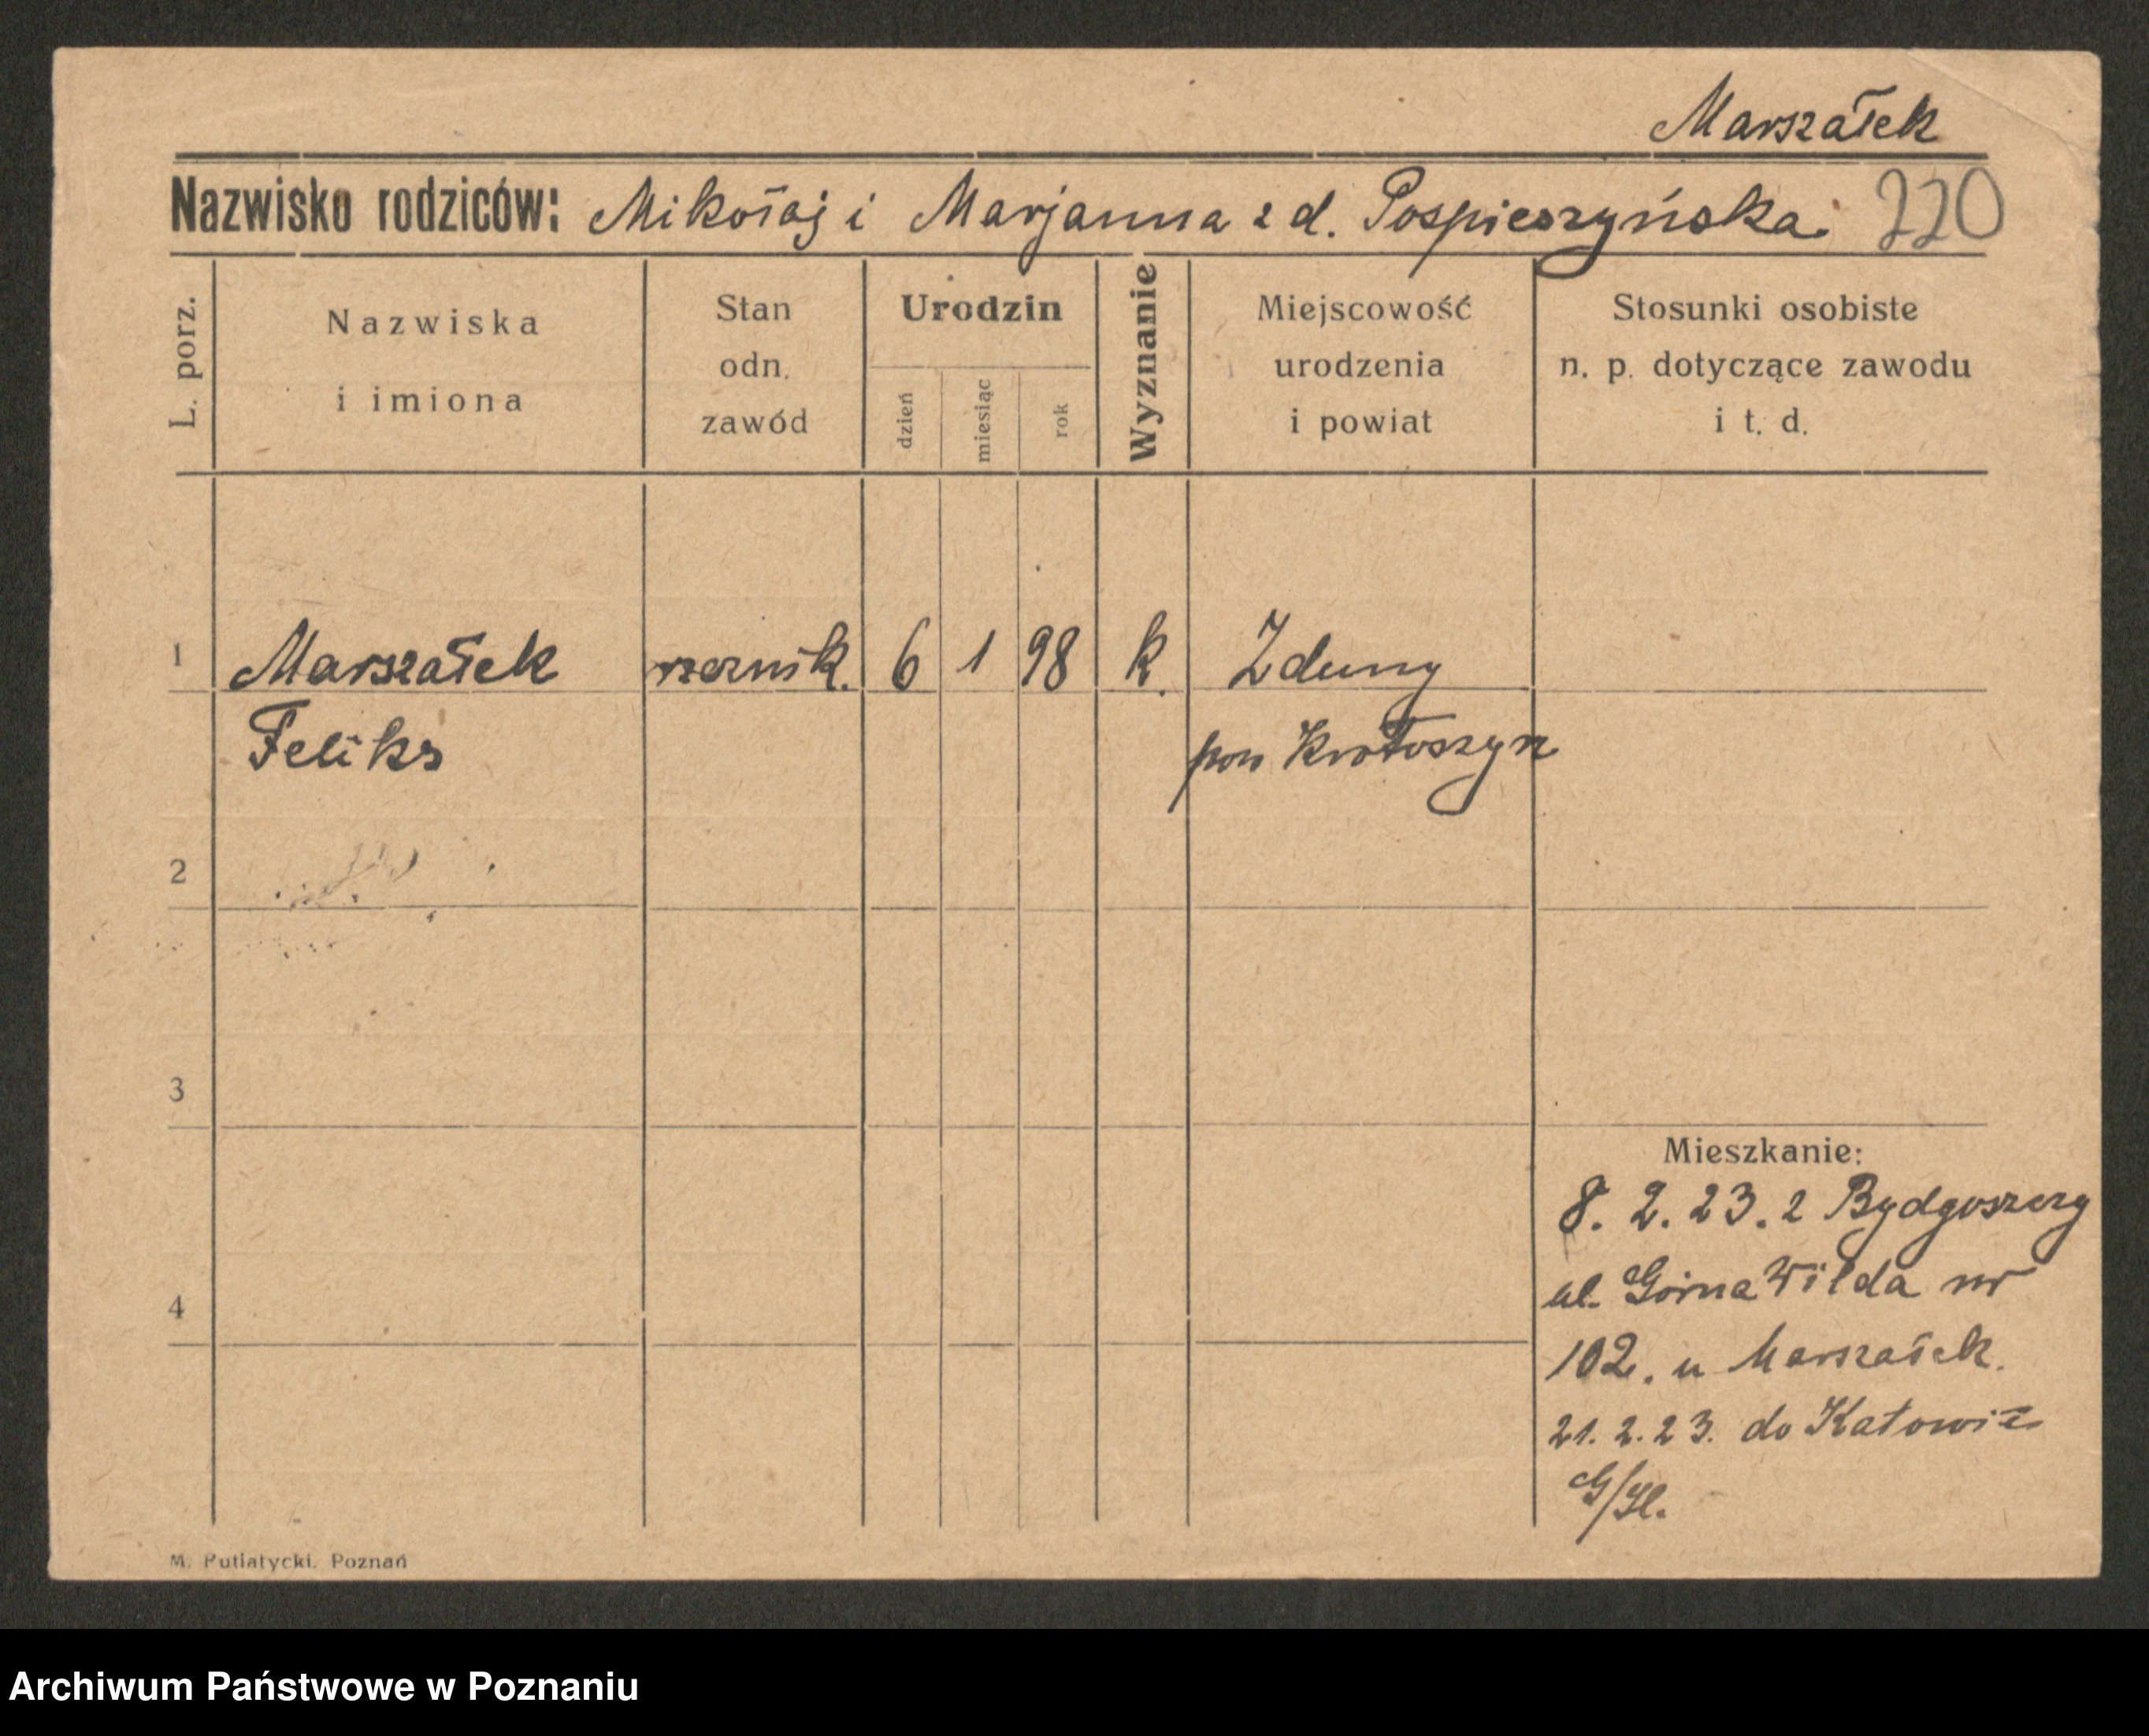 Marszałek
Nazwisko rodziców: Mikołaj i Marjanna z d. Pospieszyńska 220
L. porz.
Nazwiska
i imiona
Stan
odn.
zawód
Urodzin
dzień
miesiąc
rok
Wyznanie
Miejscowość
urodzenia
i powiat
Stosunki osobiste
n. p. dotyczące zawodu
i t. d.
1 Marszałek rzeznik. 6 1 98 k. Zduny
Feliks pow Krotoszyn
2
3
Mieszkanie:
8. 2. 23. z Bydgoszczy
ul. Górna Wilda nr
4
102. u Marszałek.
21. 2. 23. do Katowic
M. Putiatycki. Poznań
Archiwum Państwowe w Poznaniu